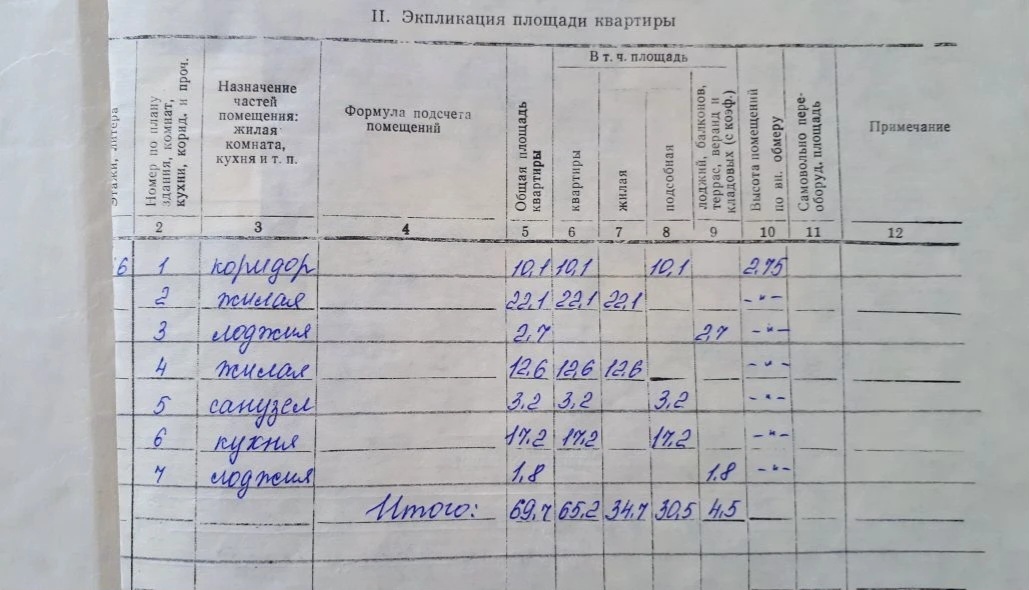 II. Экпликация площади квартиры
Этажи, литера
Номер по плану здания, комнат, кухни, корид. и проч.
Назначение частей помещения: жилая комната, кухня и т. п.
Формула подсчета помещений
Общая площадь квартиры
В т. ч. площадь
квартиры
жилая
подсобная
лоджий, балконов, террас, веранд и кладовых (с коэф.)
Высота помещений по вн. обмеру
Самовольно переоборуд. площадь
Примечание
2 3 4 5 6 7 8 9 10 11 12
6 1 коридор 10,1 10,1 10,1 2,75
2 жилая 22,1 22,1 22,1 -"-
3 лоджия 2,7 2,7 -"-
4 жилая 12,6 12,6 12,6 -"-
5 санузел 3,2 3,2 3,2 -"-
6 кухня 17,2 17,2 17,2 -"-
7 лоджия 1,8 1,8 -"-
Итого: 69,7 65,2 34,7 30,5 4,5